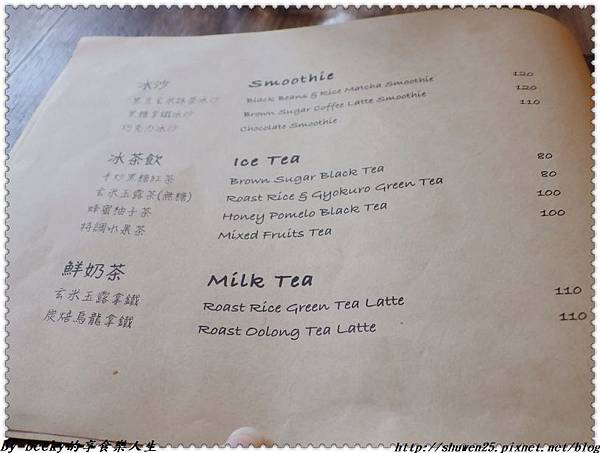 冰沙 Smoothie
黑豆玄米抹茶冰沙 Black Beans & Rice Matcha Smoothie 120
黑糖拿鐵冰沙 Brown Sugar Coffee Latte Smoothie 120
巧克力冰沙 Chocolate Smoothie 110
冰茶飲 Ice Tea
手炒黑糖紅茶 Brown Sugar Black Tea 80
玄米玉露茶(無糖) Roast Rice & Gyokuro Green Tea 80
蜂蜜柚子茶 Honey Pomelo Black Tea 100
特調水果茶 Mixed Fruits Tea 100
鮮奶茶 Milk Tea
玄米玉露拿鐵 Roast Rice Green Tea Latte 110
炭焙烏龍拿鐵 Roast Oolong Tea Latte 110
By-becky的享食樂人生 http://shuwen25.pixnet.net/blog